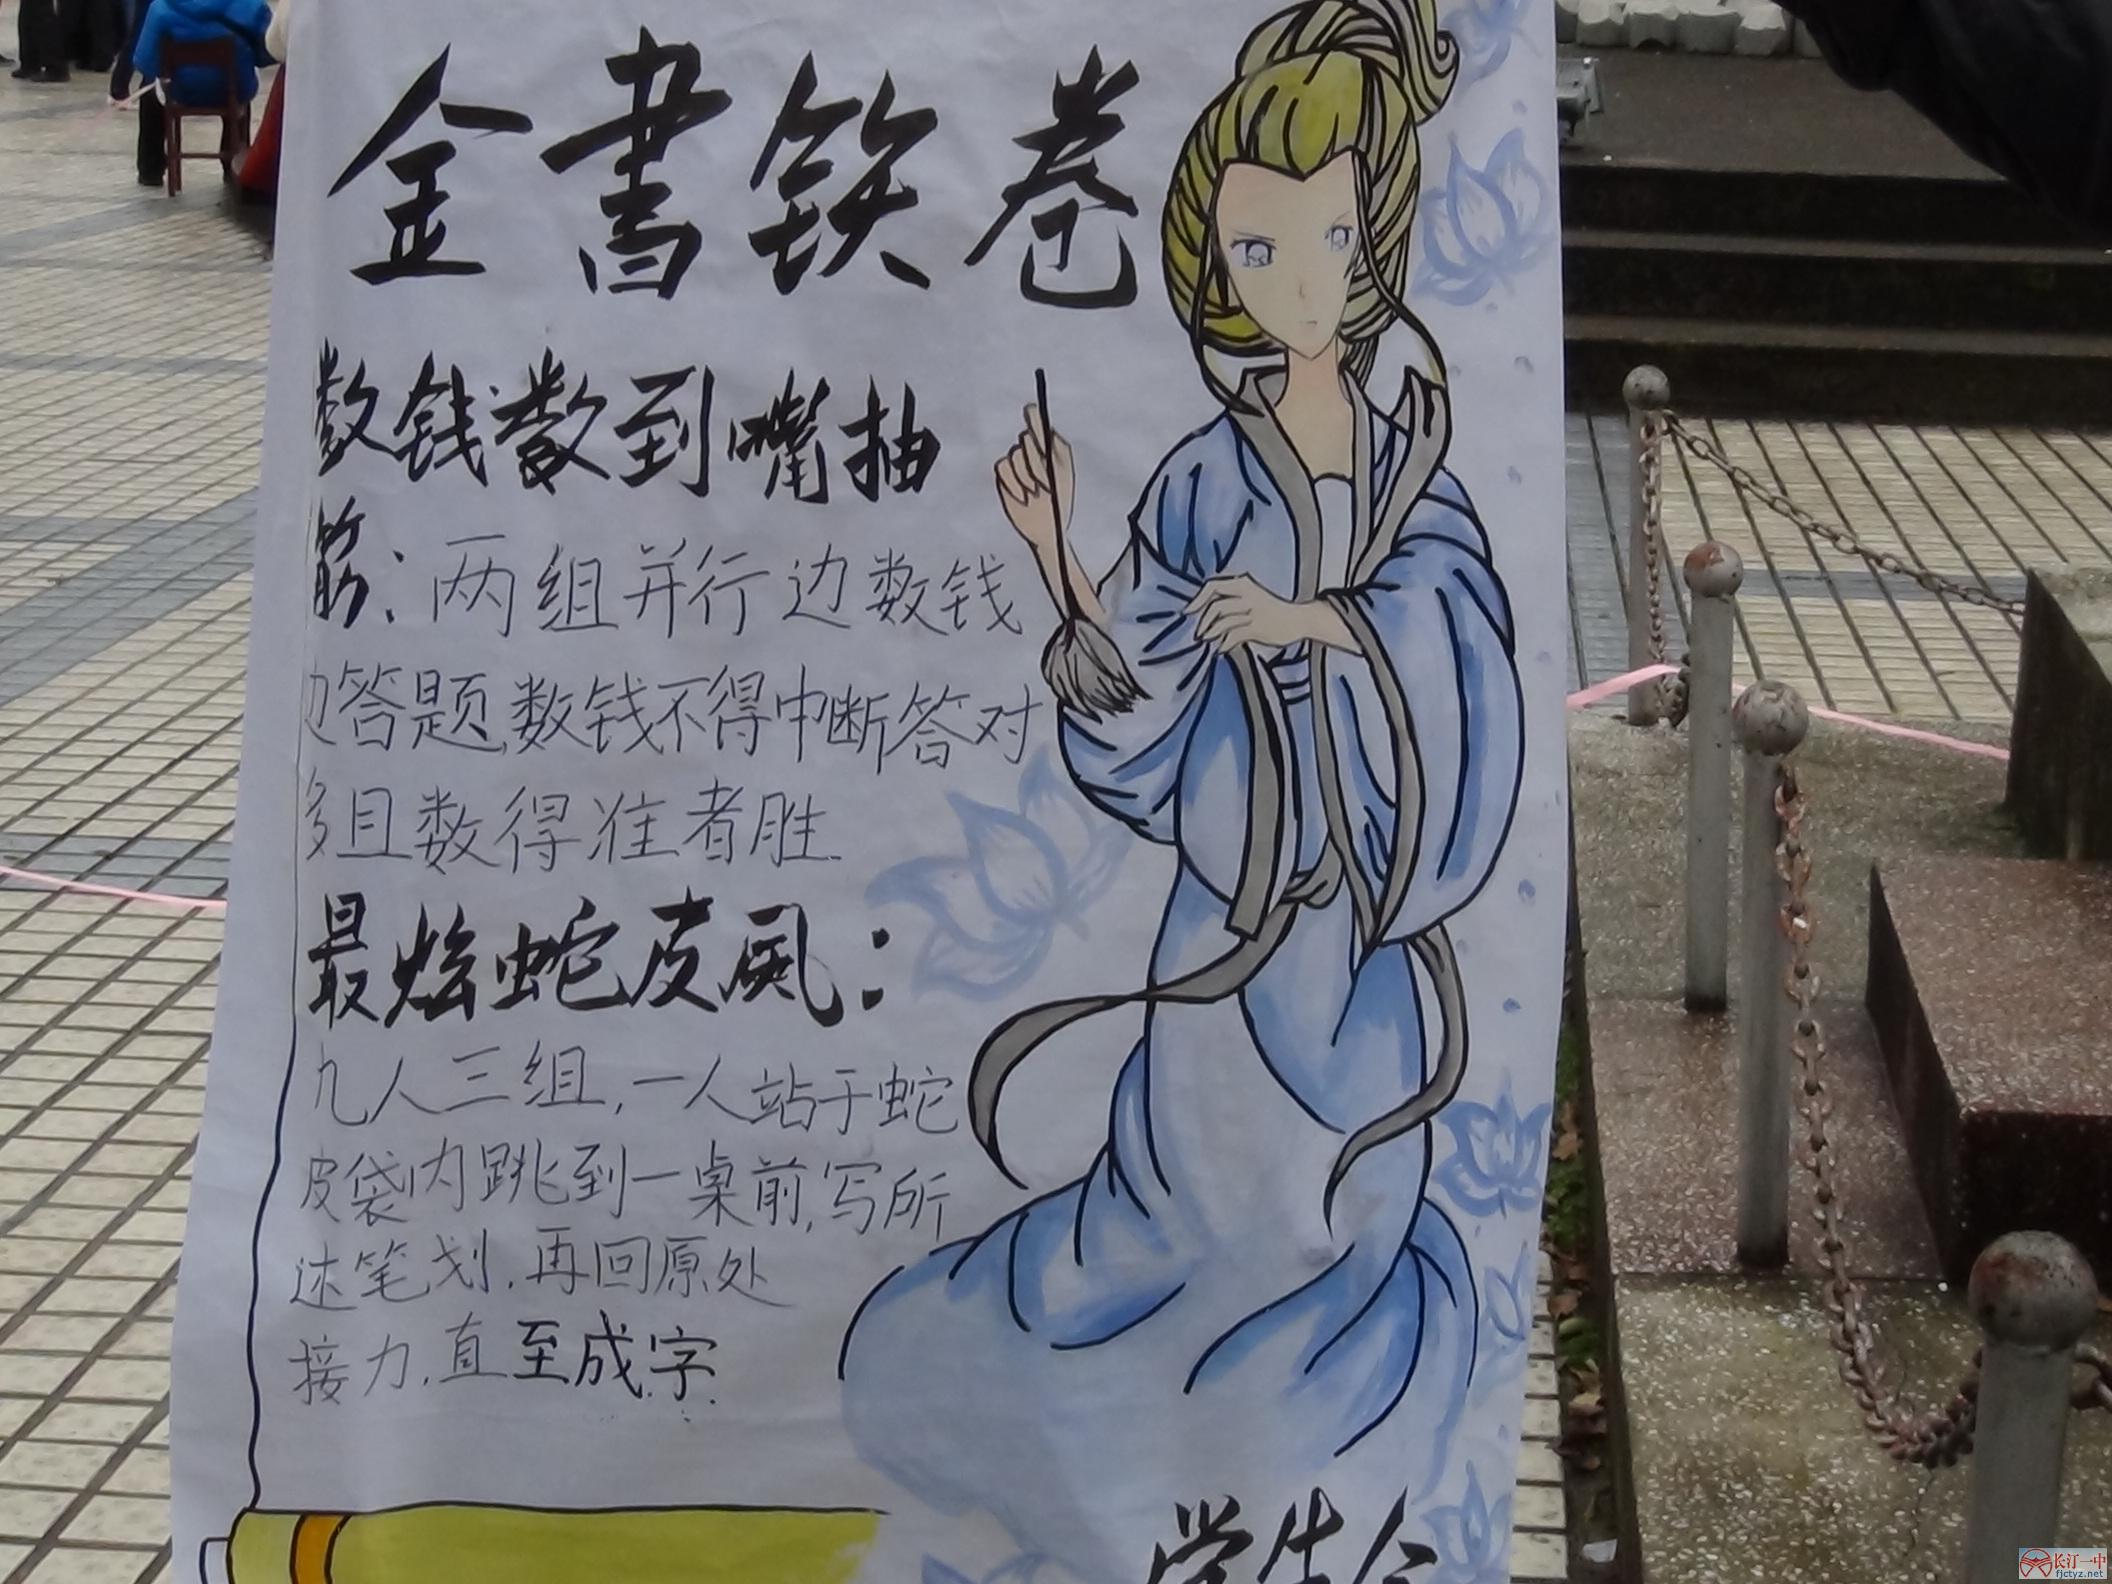 金書铁卷
数钱数到嘴抽
筋：两组并行边数钱
边答题,数钱不得中断答对
多且数得准者胜.
最炫蛇皮风：
九人三组,一人站于蛇
皮袋内跳到一桌前,写所
述笔划,再回原处
接力,直至成字.
学生会
长汀一中
fjctyz.net